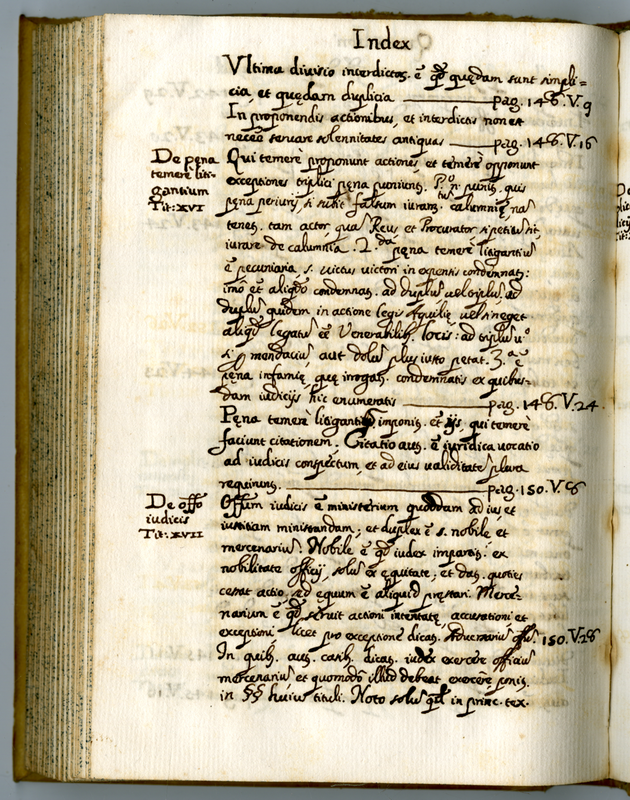 Index
Vltima divisio interdictoȝ. ē q̄d quędam sunt simpli=
cia, et quędam duplicia pag. 148. V. 9
In proponendis actionibus, et interdictis non est
necē̄e servare solennitates antiquas pag. 148. V. 16
De pena
temere liti-
gantium
Tit: XVI
Qui temerè proponunt actiones, et temerè opponunt
exceptiones triplici pęna puniunt.
pęna periurij, si subit falsum iuram. calumnię, na
tenet. tam actor, quā Reus et Procurator si petitū sit,
iurare de calumnia. 2.da pęna temerè litigantiū
ē pecuniaria s. victus victori in expensis condemnat:
imò et aliqđo condemnat. ad duplū vel triplū, ad
duplū quidem in actione legis Aquilię vel si neget
aliqđ legatū eē Venerabilib. locis: ad triplū v.o
si mendaciū aut dolus plus iusto petat. 3.a ē
pęna infamię, quę irrogat. condemnatis ex quibus-
dam iudicijs hic enumeratis pag. 148. V. 24
Pęna temerè litigantiū imponit. et ijs, qui temerè
faciunt citationem. Citatio aut. ē iuridica vocatio
ad iudicis conspectum, et ad eius validitatē plura
requirunt. pag. 150. V. 8
De offo
iudicis
Tit: XVII
Offium iudicis ē ministerium quoddam ad ius et
iustitiam ministrandam; et duplex ē s. nobile et
mercenariū. Nobile ē q̄d iudex impartit. ex
nobilitate officij, solū ex ęquitate; et dat. quoties
cessat actio, sed ęquum ē aliquid pręstari. Merce-
narium ē q̄d servit actioni intentatę, accusationi et
exceptioni licet pro exceptione dicat. Aduersariū offiū. 150. V. 28
In quib. aut. casib. dicat. iudex exercere officiū
mercenariū et quomodo illud debeat exercere ponit.
in §§ huius tituli. Noto solū q̄d in princ. tex.